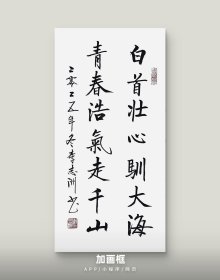 白首壮心馴大海
青春浩氣走千山
二零二五年冬李志洲书
加画框
APP/小程序/网页